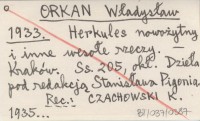 ORKAN Władysław
1933. Herkules nowożytny
i inne wesołe rzeczy. —
Kraków. Ss. 205, okł. Dzieła
pod redakcją Stanisława Pigonia.
Rec.: CZACHOWSKI K.
1935...